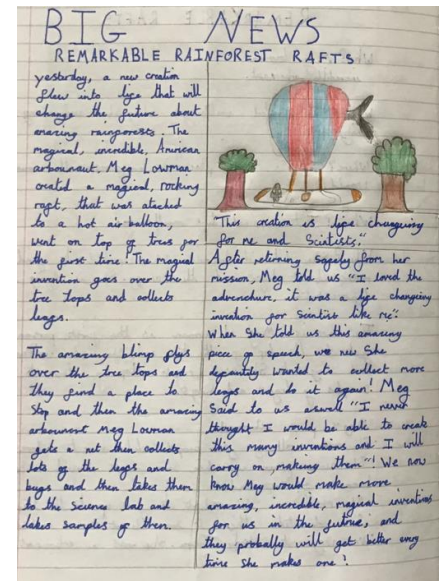 BIG NEWS
REMARKABLE RAINFOREST RAFTS
yesterday, a new creation
flew into life that will
change the future about
amazing rainforests. The
magical, incredible, American
arbournaut. Meg Lowman
created a magical, rocking
raft, that was atached
to a hot air balloon,
went on top of trees for
the first time! The magical
invention goes over the
tree tops and collects
leafs.
The amazing blimp flys
over the tree tops and
they find a place to
stop and then the amazing
arbournont Meg Lowman
gets a net then collects
lots of the leafs and
bugs and then takes them
to the science lab and
takes samples of them.
"This creation is life changeing
for me and Scietists."
After returning safely from her
mission, Meg told us "I loved the
adrenchure, it was a life changeing
invention for scientist like me".
When She told us this amazing
piece of speech, we new She
depantly wanted to collect more
leafs and do it again! Meg
Said to us aswell "I never
thought I would be able to create
this many inventions and I will
carry on making them"! We now
know Meg would make more
amazing, incredible, magical inventions
for us in the futrue, and
they probally will get better every
time She makes one!